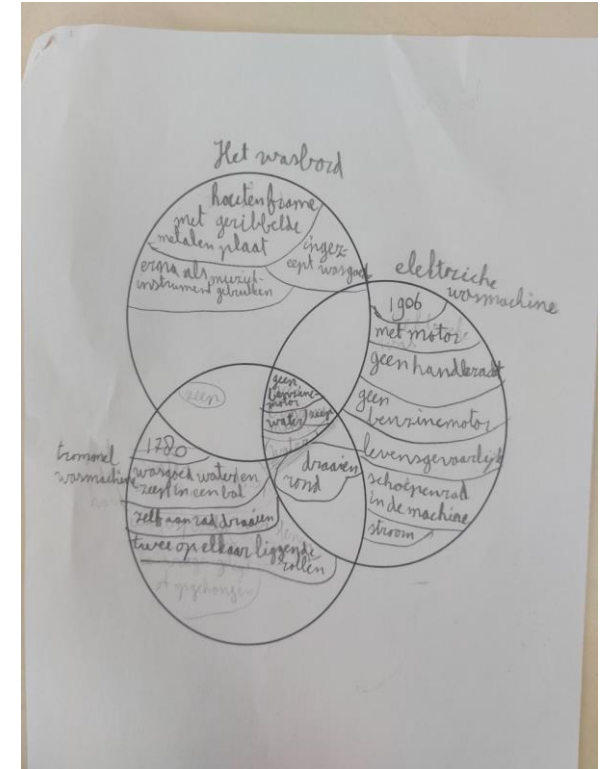 Het wasbord
houten frame
met geribbelde
metalen plaat
ingez-
eept wasgoed
erna als muziek-
instrument gebruiken
elektriche
wasmachine
1906
met motor
geen handkracht
geen
benzinemotor
levensgevaarlijk
schoepenrad
in de machine
stroom
geen
benzine-
motor
water
zeep
zeep
draaien
rond
trommel
wasmachine
1780
wasgoed water en
zeep in een bal
zelf aan rad draaien
twee op elkaar liggende
rollen